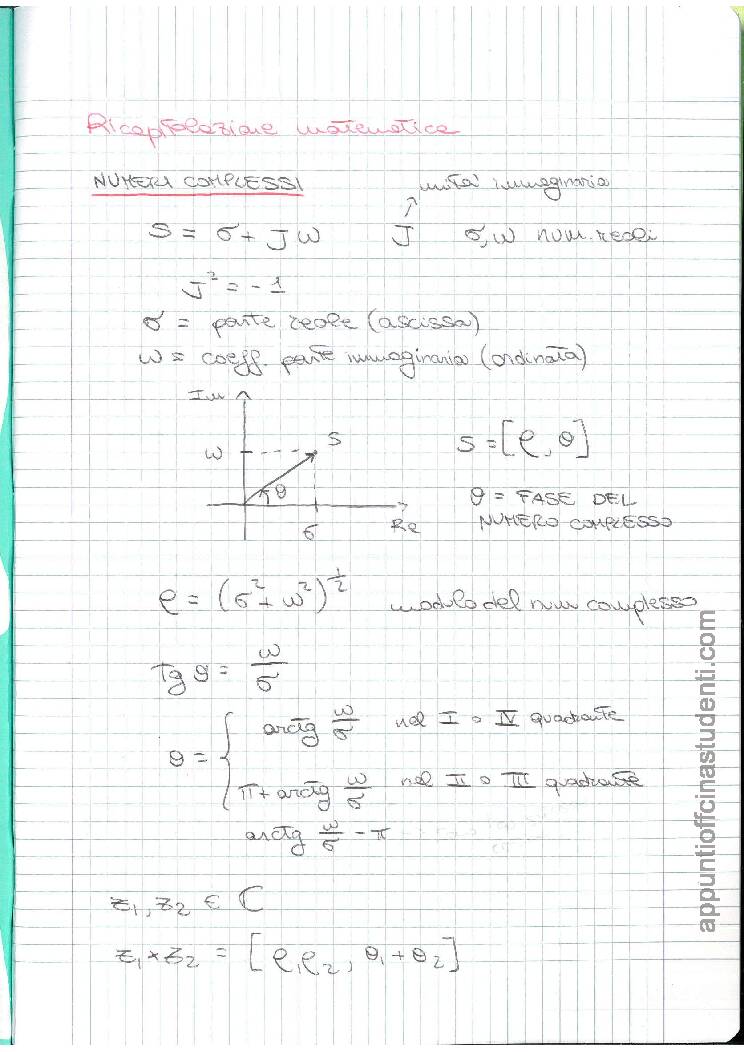 Ricapitolazione matematica
NUMERI COMPLESSI
unita' immaginaria
S = σ + J ω    J    σ, ω num. reali
J² = - 1
σ = parte reale (ascissa)
ω = coeff. parte immaginaria (ordinata)
Im
ω    S    S = [ρ, θ]
θ
θ = FASE DEL
Re    NUMERO COMPLESSO
σ
ρ = (σ² + ω²)^½    modulo del num complesso
Tg θ = ω/σ
θ = { arctg ω/σ    nel I o IV quadrante
π + arctg ω/σ    nel II o III quadrante
arctg ω/σ - π
z₁, z₂ ∈ ℂ
z₁ × z₂ = [ρ₁ρ₂, θ₁ + θ₂]
appuntioffcinastudenti.com